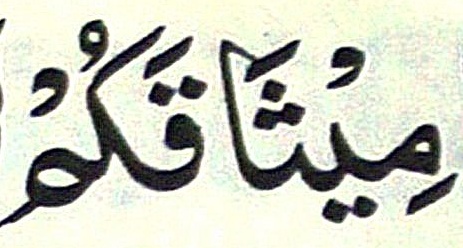 مِيْثَاقَكُمْ